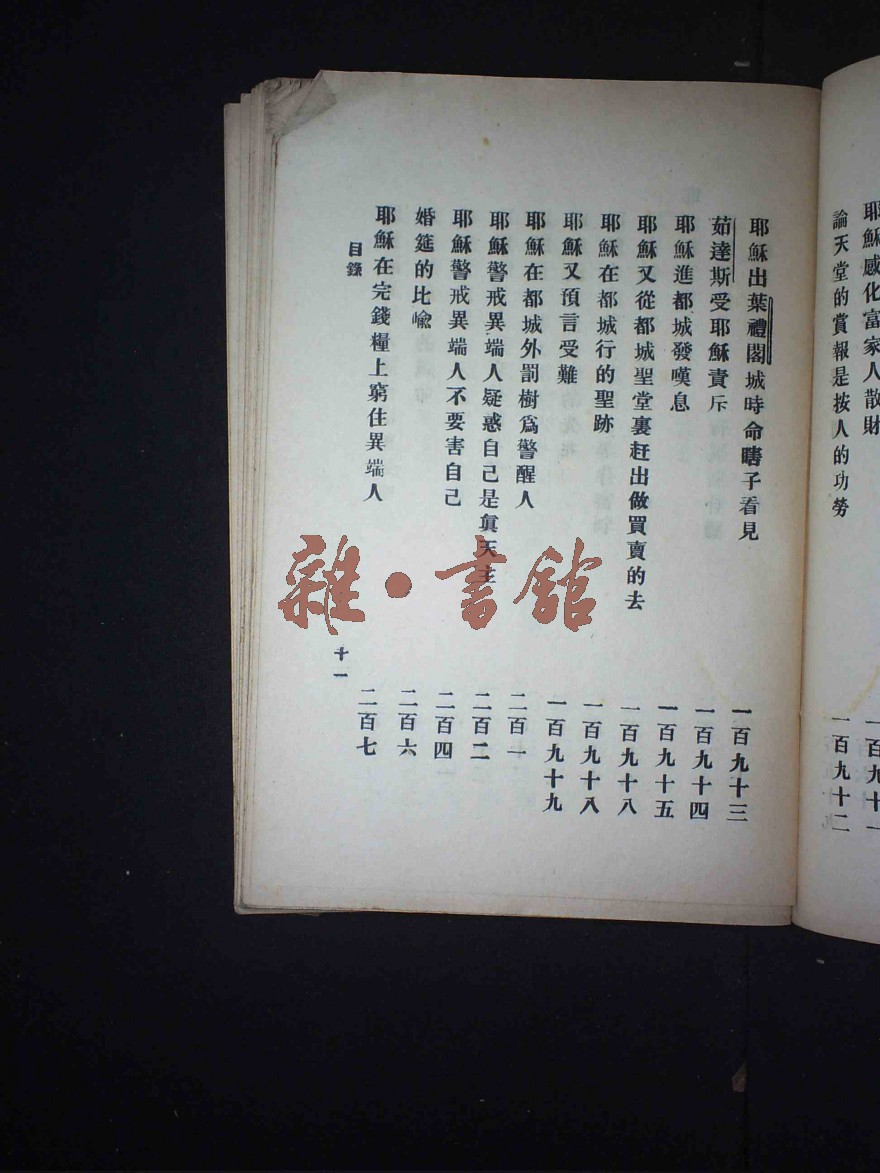 耶穌感化富家人散財 一百九十一
論天堂的賞報是按人的功勞 一百九十二
耶穌出葉禮閣城時命瞎子看見 一百九十三
茹達斯受耶穌責斥 一百九十四
耶穌進都城發嘆息 一百九十五
耶穌又從都城聖堂裏赶出做買賣的去 一百九十八
耶穌在都城行的聖跡 一百九十八
耶穌又預言受難 一百九十九
耶穌在都城外罰樹爲警醒人 二百一
耶穌警戒異端人疑惑自己是眞天主 二百二
耶穌警戒異端人不要害自己 二百四
婚筵的比喩 二百六
耶穌在完錢糧上窮住異端人 二百七
目錄 十一
雜·書館